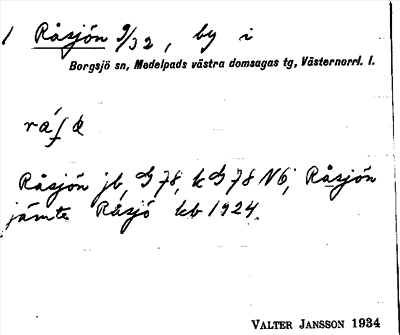 1 Råsjön 9/32, by i
Borgsjö sn, Medelpads västra domsagas tg, Västernorrl. l.
Råsjön jb, G 78, k G 78 N6, Råsjön
jämte Råsjö kb 1924.
VALTER JANSSON 1934